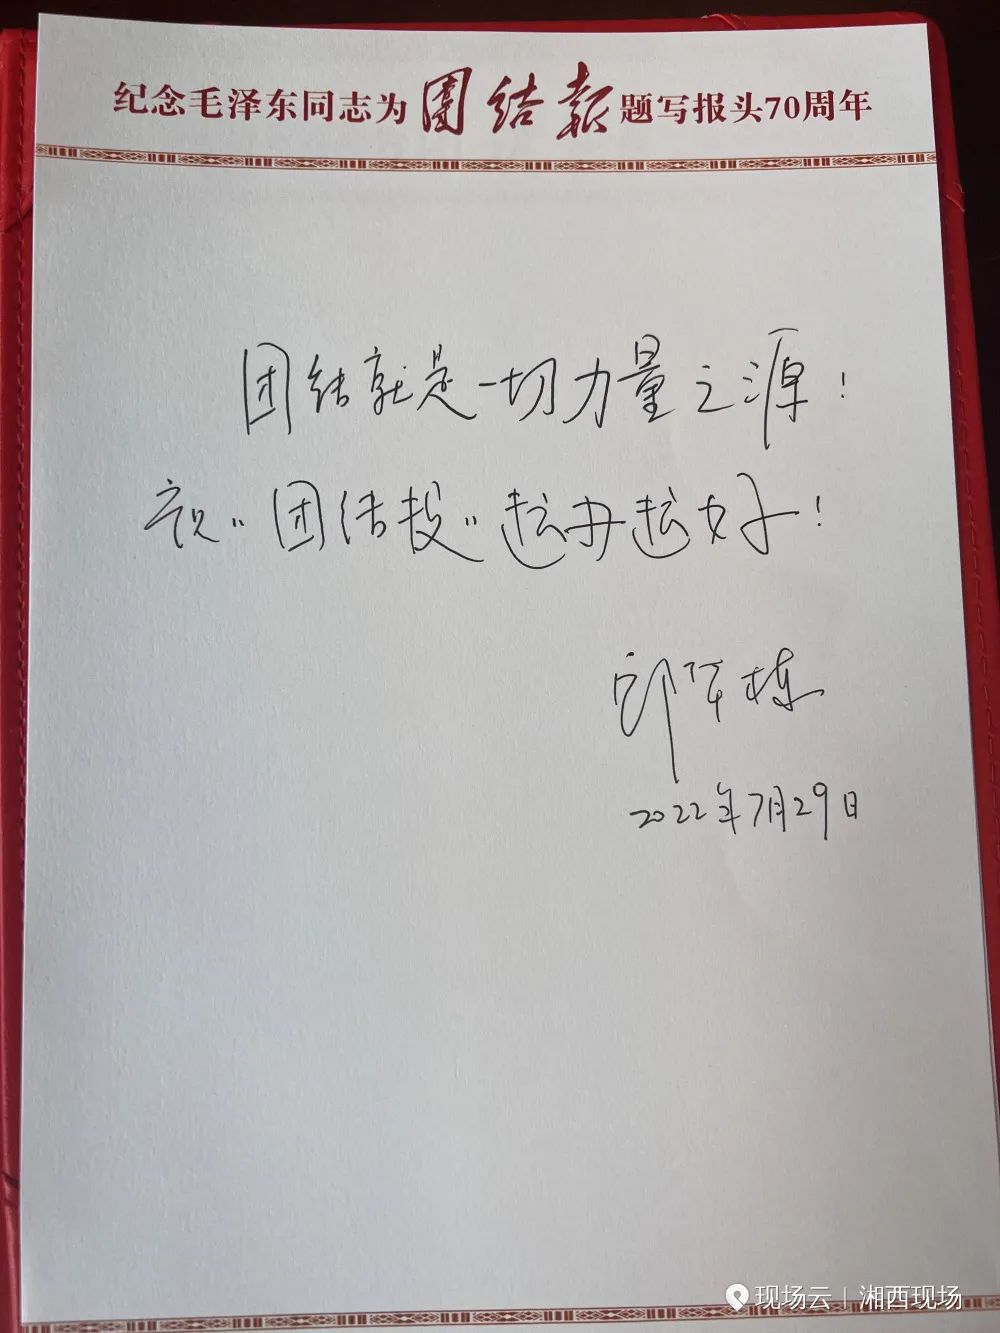 纪念毛泽东同志为團结報题写报头70周年
团结就是一切力量之源！
祝“团结报”越办越好！
军栋
2022年7月29日
现场云｜湘西现场